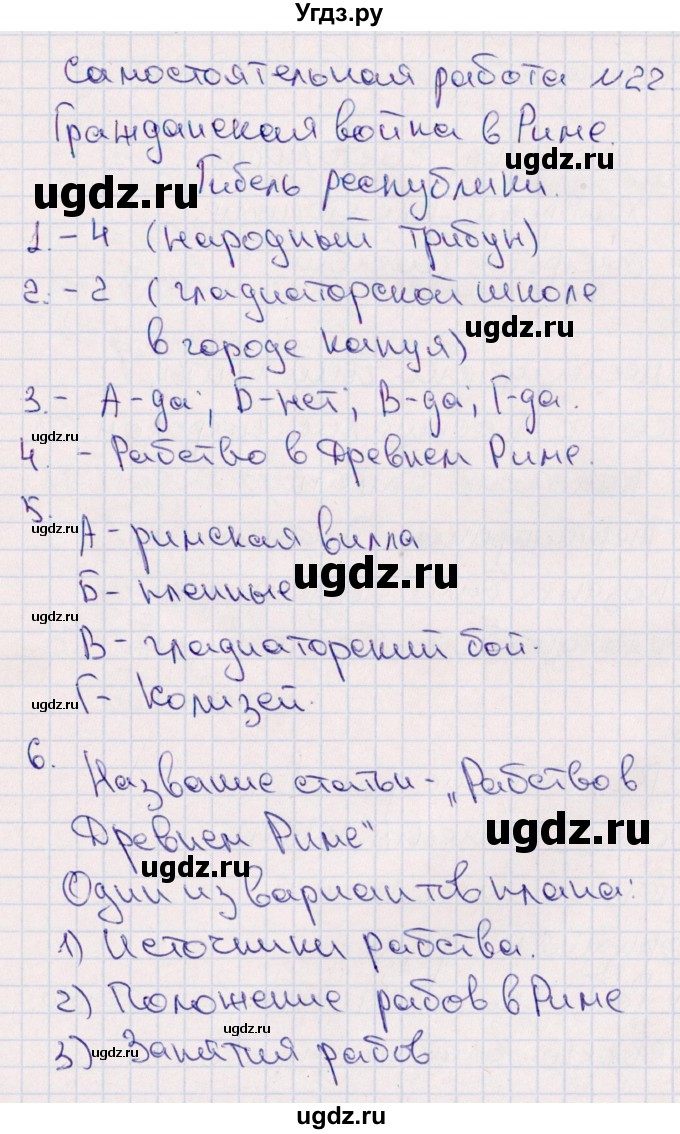 Угдз.ру
Самостоятельная работа №22.
Гражданская война в Риме.
Гибель республики.
ugdz.ru
1. - 4 (народный трибун)
2. - 2 (гладиаторской школе
ugdz.ru
в городе Капуя)
3. - А-да; Б-нет; В-да; Г-да.
ugdz.ru
4. - Рабство в Древнем Риме.
5.
ugdz.ru
А - римская вилла
ugdz.ru
Б - пленные
ugdz.ru
В - гладиаторский бой.
ugdz.ru
Г - Колизей.
6.
Название статьи - „Рабство в
Древнем Риме"
ugdz.ru
ugdz.ru
Один из вариантов плана:
1) Источники рабства.
2) Положение рабов в Риме
ugdz.ru
3) Занятия рабов
ugdz.ru
ugdz.ru